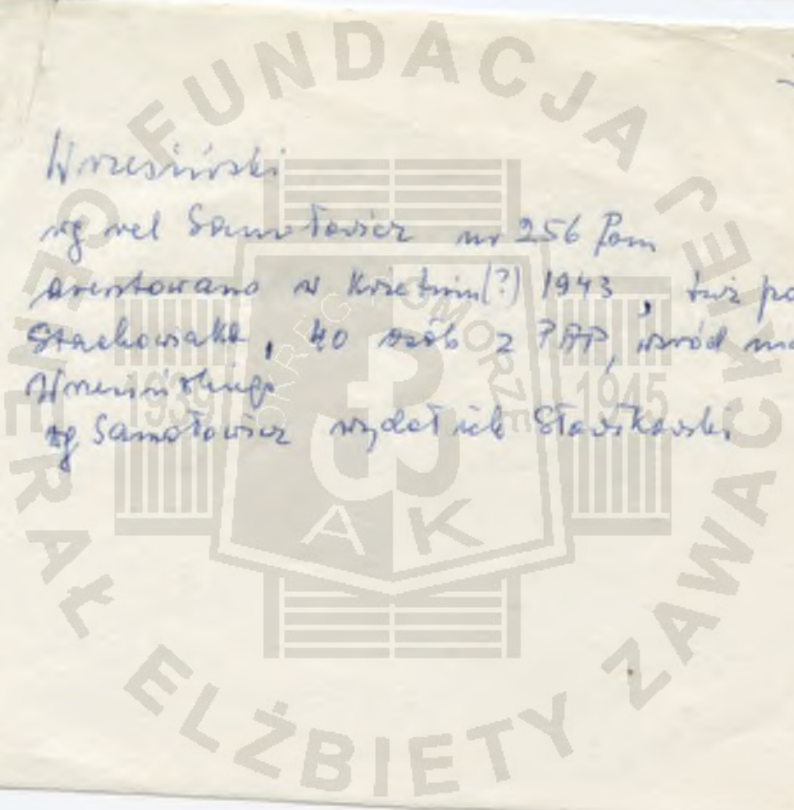 Wrzesiński
wg rel Samotowicz nr 256 Pom
aresztowano w kwietniu(?) 1943, tuż po
Stachowiaka, 40 osób z PAP, wśród
Wrzesińskiego
wg Samotowicz wydał ich Stawikowski
FUNDACJA GENERAŁ ELŻBIETY ZAWACKIEJ
OKRĘG POMORZE
1939 1945
AK